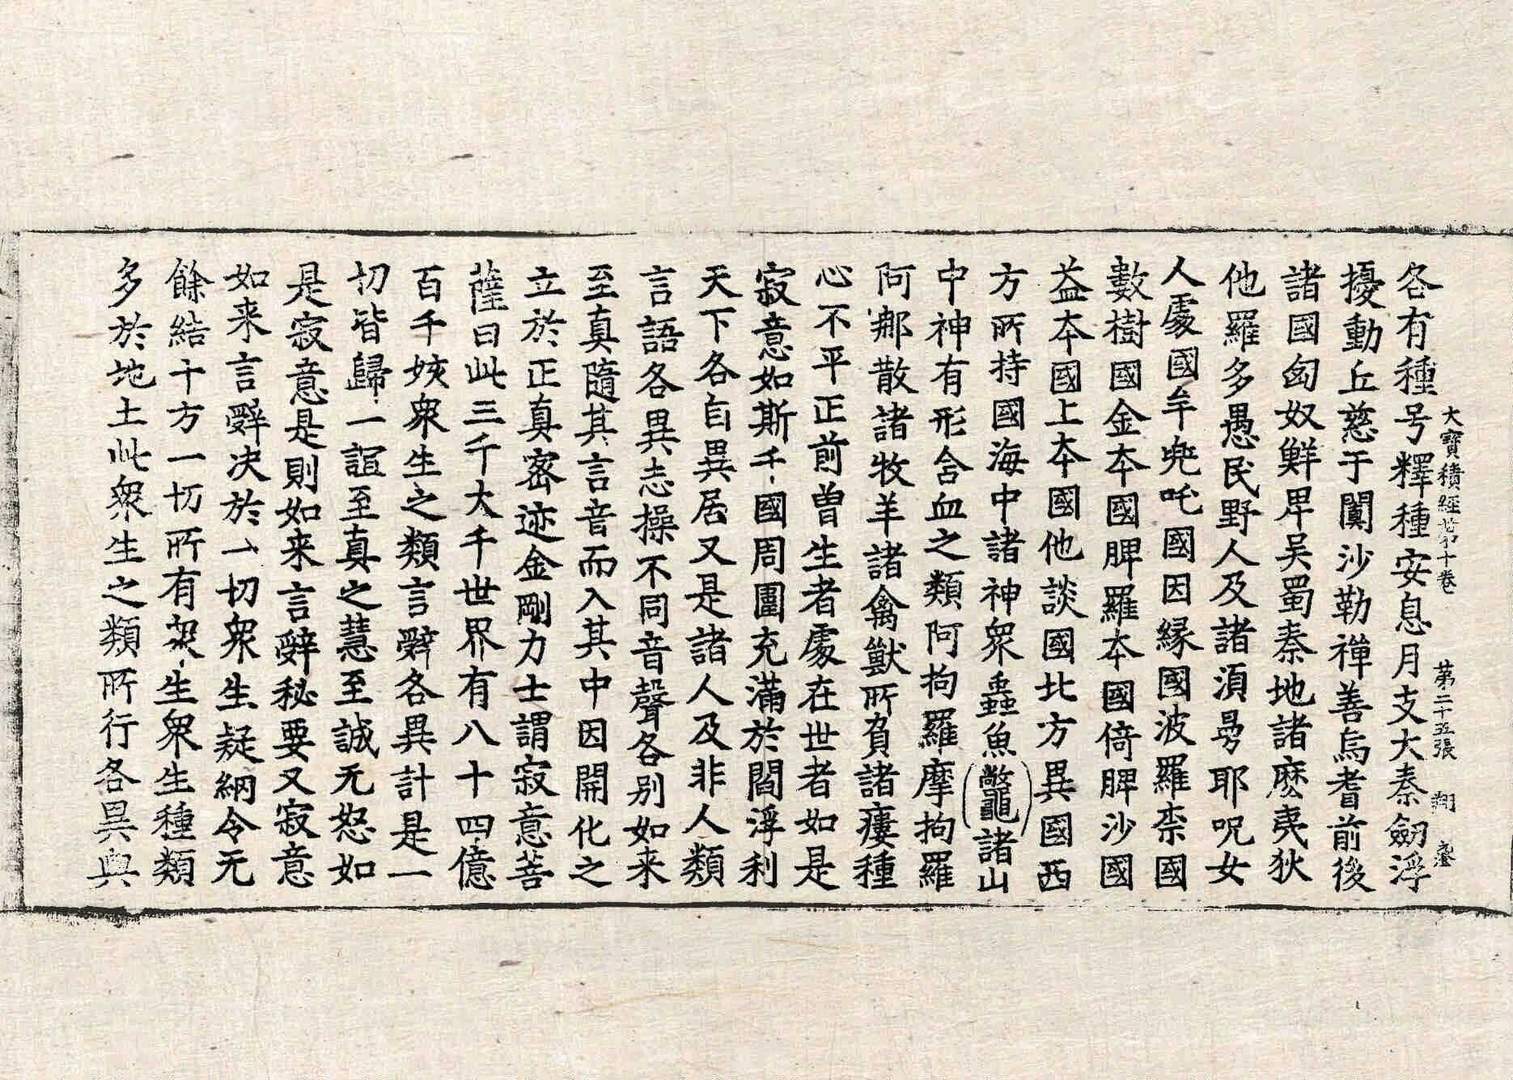 大寶積經苐十卷 苐二十五張 翔
各有種号釋種安息月支大秦劒浮
擾動丘慈于闐沙勒禪善烏耆前後
諸國匈奴鮮卑吴蜀秦地諸麽夷狄
他羅多愚民野人及諸湏曼耶呪女
人處國牟兠吒國因緣國波羅柰國
數樹國金夲國脾羅夲國倚脾沙國
益夲國上夲國他談國北方異國西
方所持國海中諸神衆蟲魚鱉黿諸山
中神有形含血之類阿拘羅摩拘羅
阿鄁散諸牧羊諸禽獸所負諸瘻種
心不平正前曽生者處在世者如是
寂意如斯千國周圍充滿於閻浮利
天下各自異居又是諸人及非人類
言語各異志操不同音聲各別如来
至真隨其言音而入其中因開化之
立於正真密迹金剛力士謂寂意菩
薩曰此三千大千世界有八十四億
百千姟衆生之類言辭各異計是一
切皆歸一誼至真之慧至誠无恕如
是寂意是則如来言辭秘要又寂意
如来言辭决於一切衆生疑網令无
餘結十方一切所有衆生衆生種類
多於地土此衆生之類所行各異與